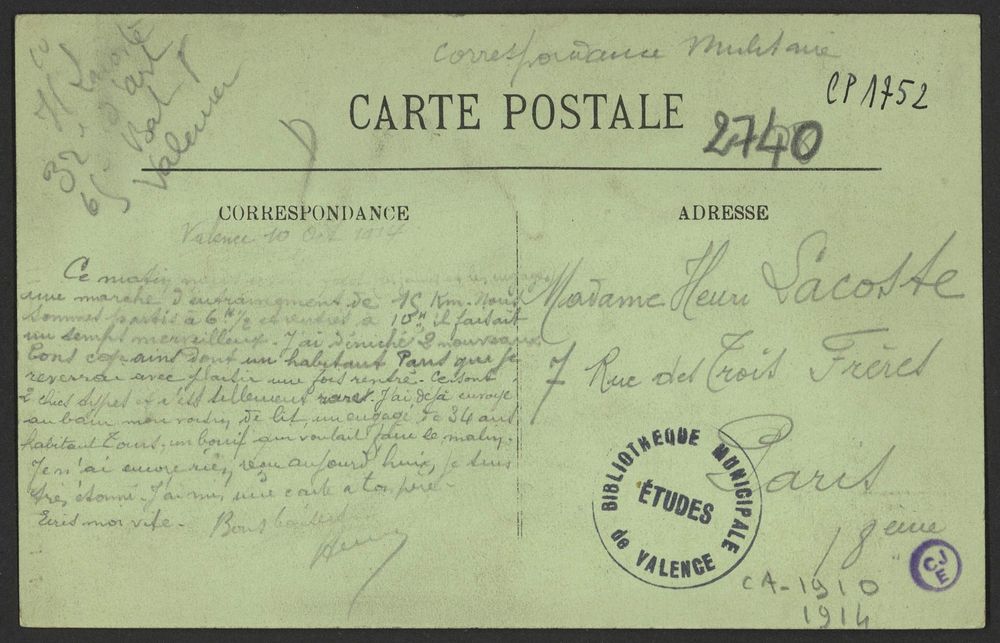 Correspondance Militaire
CP 1752
CARTE POSTALE
2740
H Lacoste
d'art
32
Bat
65
Valence
CORRESPONDANCE
ADRESSE
Valence 10 Oct 1914
Ce matin nous
une marche d'entrainement de 15 Km. Nous
sommes partis à 6 H ½ et rentrés à 10 H, il faisait
un temps merveilleux. J'ai déniché 2 nouveaux
bons copains dont un habitant Paris que je
reverrai avec plaisir une fois rentré. Ce sont
2 chics types et c'est tellement rare. J'ai déjà envoyé
au bain mon voisin de lit, un engagé de 34 ans
habitant Tours, un qui voulait faire le malin.
Je n'ai encore rien reçu aujourd'hui, je suis
très étonné. J'ai mis une carte a ton père.
Ecris moi vite. Bons baisers
Henri
Madame Henri Lacoste
7 Rue des Trois Frères
Paris
18ème
BIBLIOTHEQUE MUNICIPALE
ÉTUDES
de VALENCE
CJE
CA-1910
1914